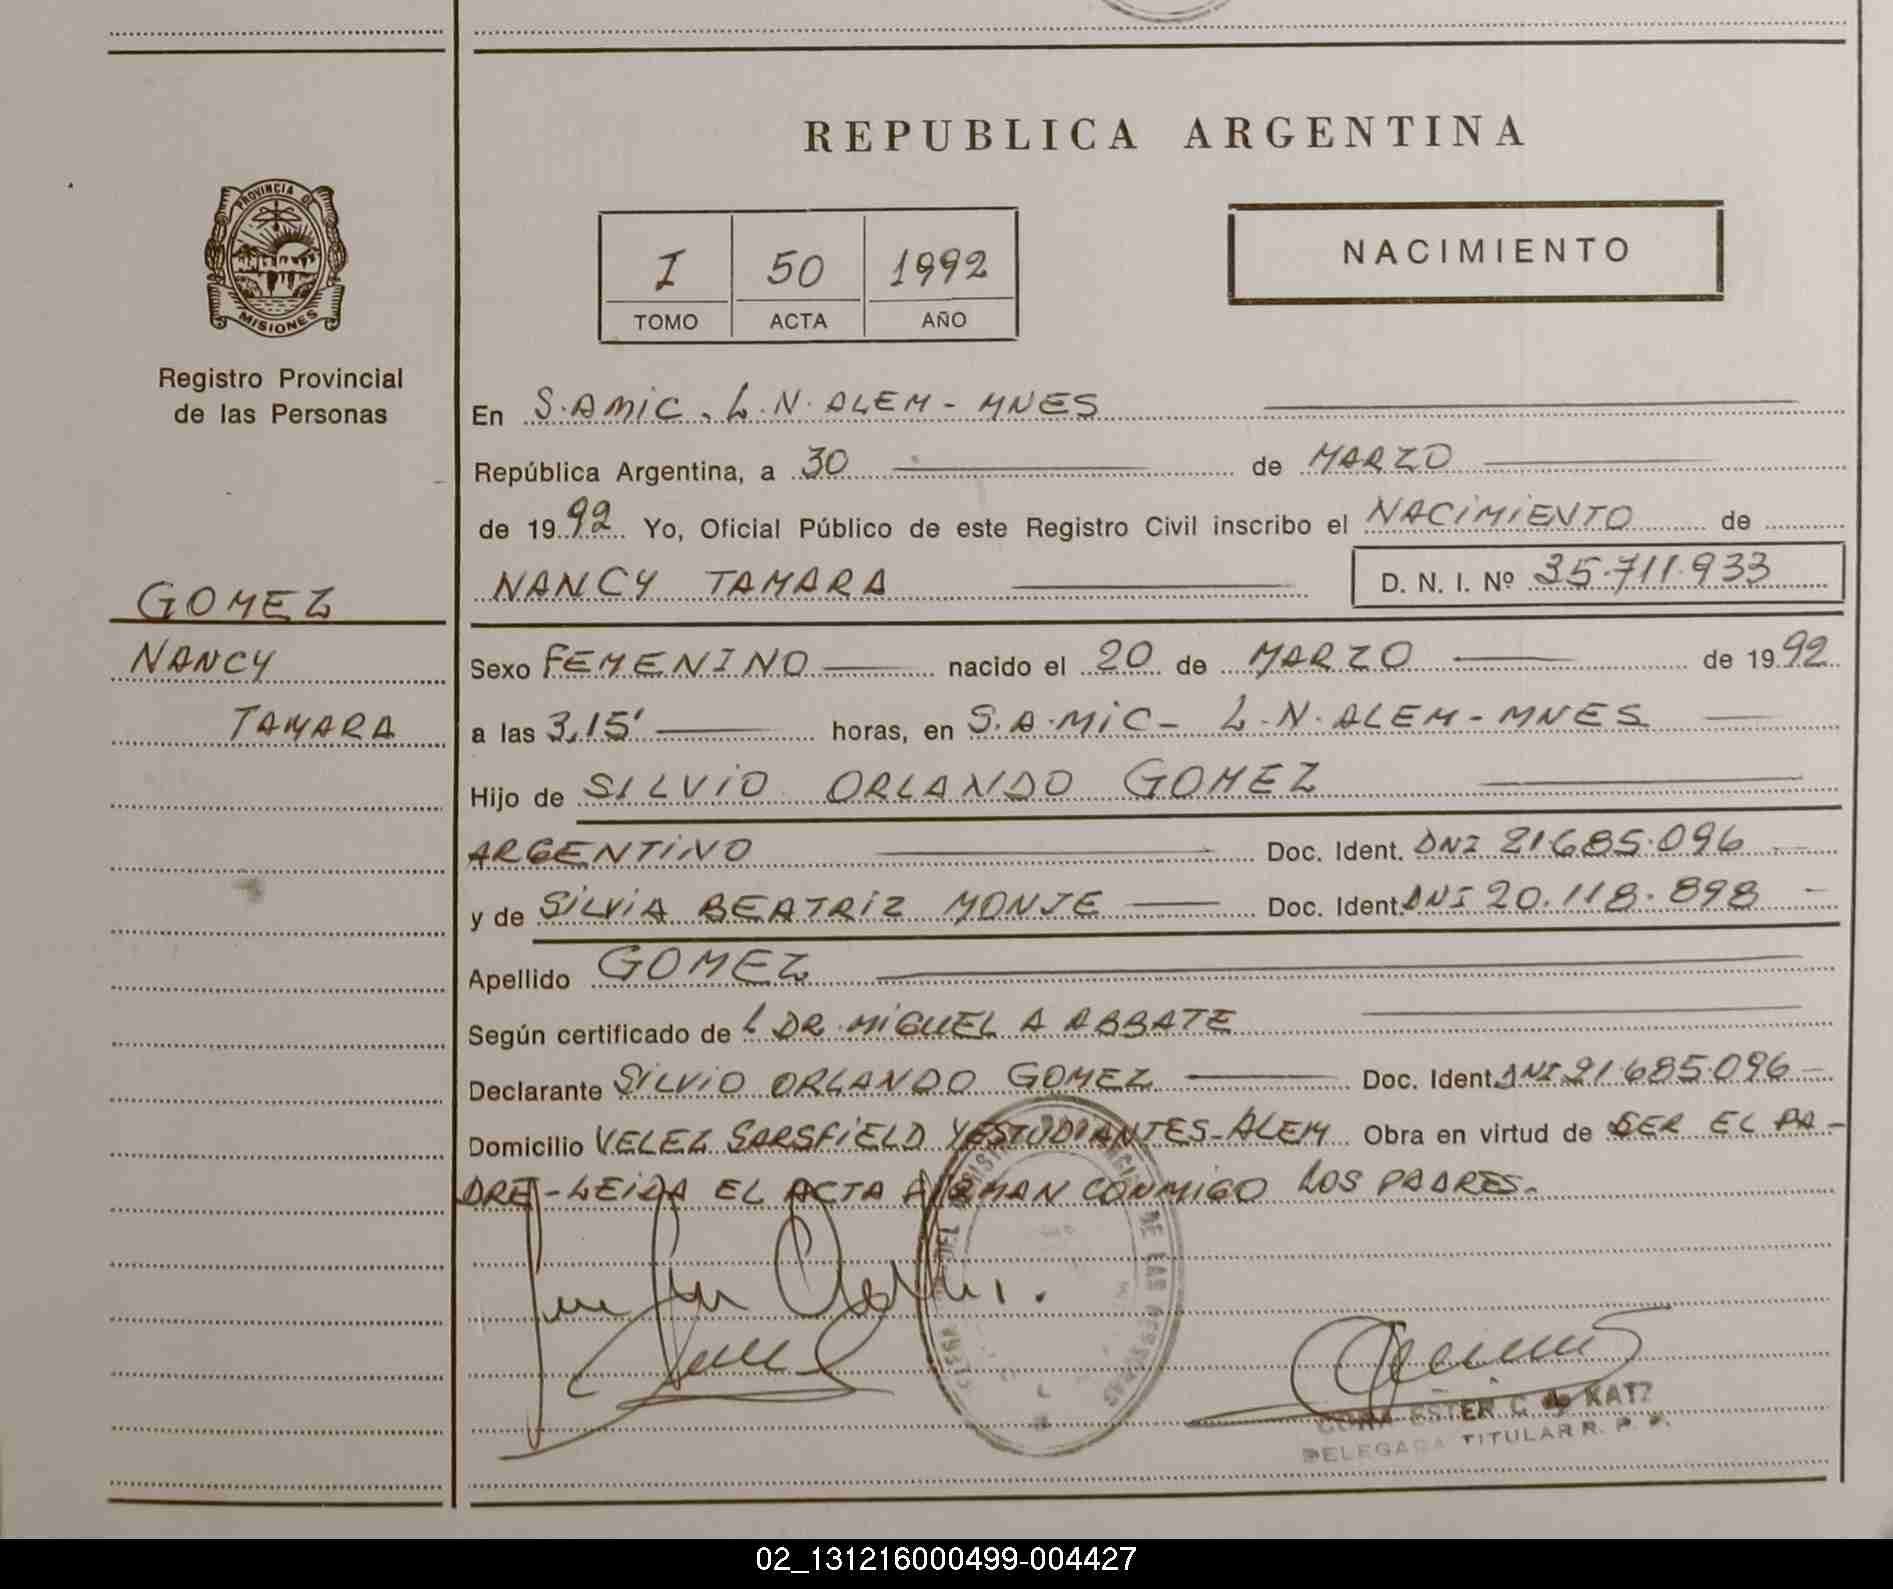 REPUBLICA ARGENTINA
PROVINCIA DE
MISIONES
Registro Provincial
de las Personas
I 50 1992
TOMO ACTA AÑO
NACIMIENTO
En S.A.MIC. L.N. ALEM - MNES
República Argentina, a 30 de MARZO
de 1992 Yo, Oficial Público de este Registro Civil inscribo el NACIMIENTO de
NANCY TAMARA D. N. I. Nº 35.711.933
GOMEZ
NANCY
TAMARA
Sexo FEMENINO nacido el 20 de MARZO de 1992
a las 3,15' horas, en S.A.MIC - L.N. ALEM - MNES
Hijo de SILVIO ORLANDO GOMEZ
ARGENTINO Doc. Ident. DNI 21.685.096
y de SILVIA BEATRIZ MONJE Doc. Ident. DNI 20.118.898
Apellido GOMEZ
Según certificado de L DR. MIGUEL A ABBATE
Declarante SILVIO ORLANDO GOMEZ Doc. Ident. DNI 21.685.096
Domicilio VELEZ SARSFIELD Y ESTUDIANTES - ALEM Obra en virtud de SER EL PA-
DRE - LEIDA EL ACTA FIRMAN CONMIGO LOS PADRES.
ESTER C de KATZ
DELEGADA TITULAR R. P. P.
02_131216000499-004427